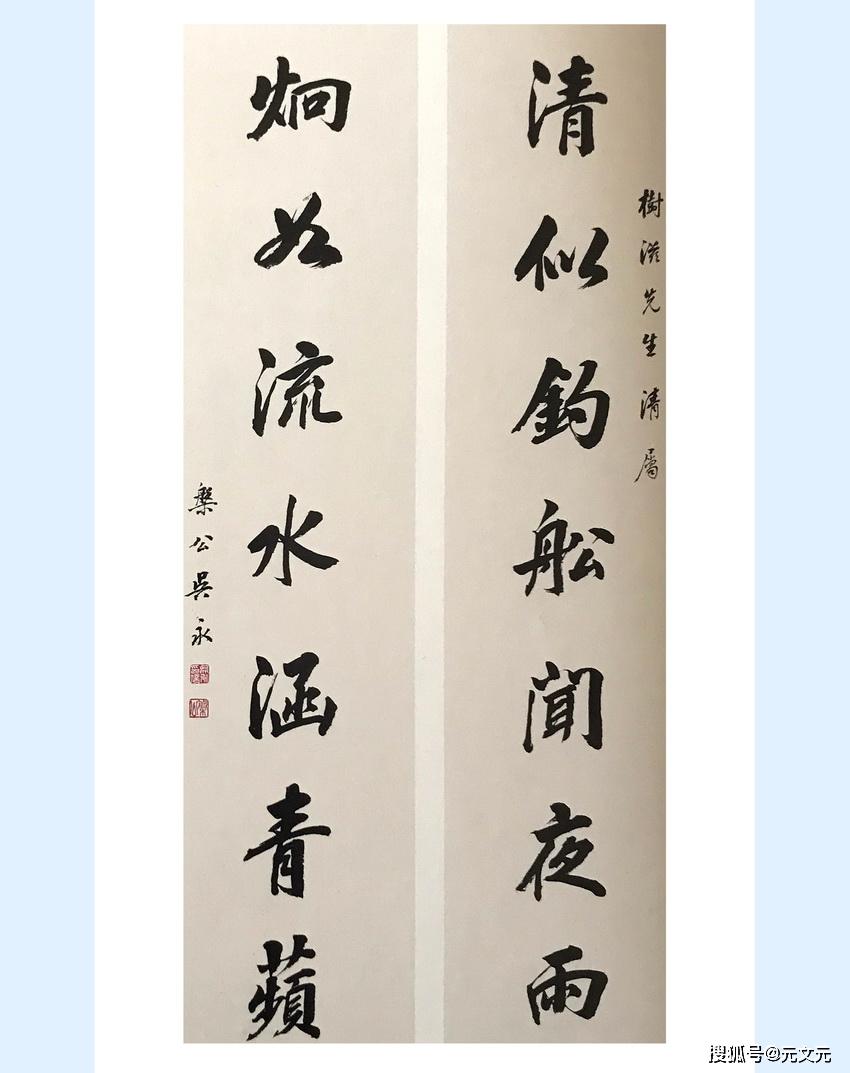 樹滋先生 清屬
清似釣舩聞夜雨
炯如流水涵青蘋
槃公吳永
搜狐号@元文元